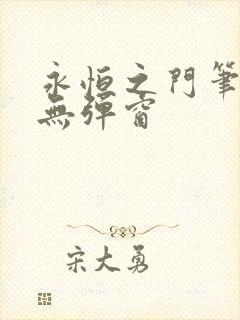 永恒之門筆
無彈窗
宋大勇